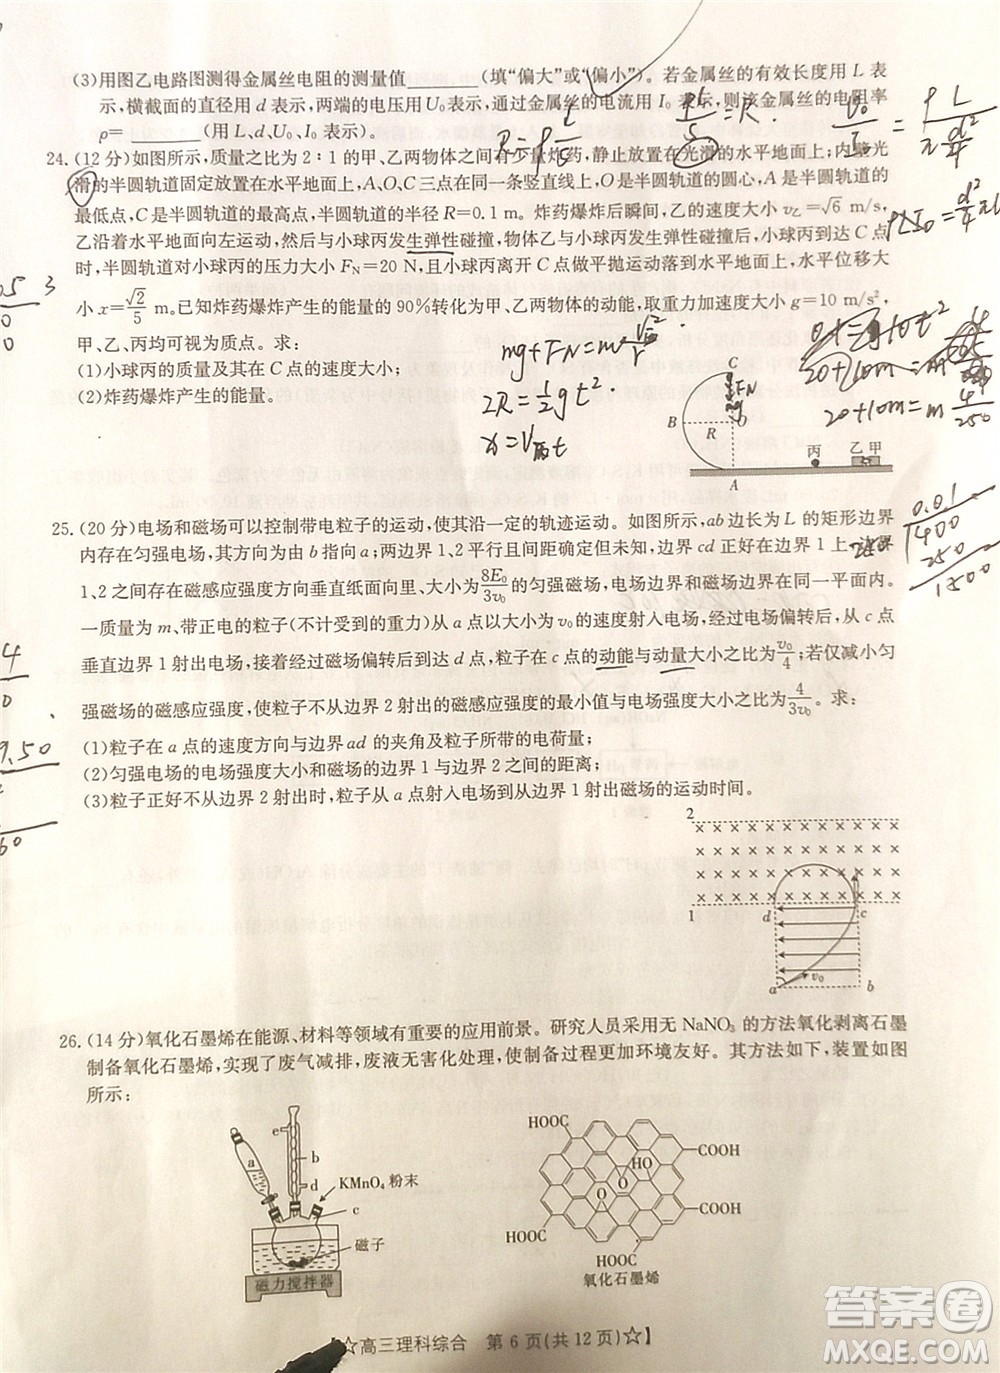 (3)用图乙电路图测得金属丝电阻的测量值________(填“偏大”或“偏小”)。若金属丝的有效长度用 L 表
示,横截面的直径用 d 表示,两端的电压用 U₀ 表示,通过金属丝的电流用 I₀ 表示,则该金属丝的电阻率
ρ=________(用 L、d、U₀、I₀ 表示)。
24.(12 分)如图所示,质量之比为 2∶1 的甲、乙两物体之间有少量炸药,静止放置在光滑的水平地面上;内壁光
滑的半圆轨道固定放置在水平地面上,A、O、C 三点在同一条竖直线上,O 是半圆轨道的圆心,A 是半圆轨道的
最低点,C 是半圆轨道的最高点,半圆轨道的半径 R=0.1 m。炸药爆炸后瞬间,乙的速度大小 v乙=√6 m/s,
乙沿着水平地面向左运动,然后与小球丙发生弹性碰撞,物体乙与小球丙发生弹性碰撞后,小球丙到达 C 点
时,半圆轨道对小球丙的压力大小 F_N=20 N,小球丙离开 C 点做平抛运动落到水平地面上,水平位移大
小 x=√2/5 m。已知炸药爆炸产生的能量的 90%转化为甲、乙两物体的动能,取重力加速度大小 g=10 m/s²,
甲、乙、丙均可视为质点。求:
(1)小球丙的质量及其在 C 点的速度大小;
(2)炸药爆炸产生的能量。
C
B
R
O
A
丙
乙 甲
mg+F_N=m
2R=½gt²
20+10m=m 4/250
25.(20 分)电场和磁场可以控制带电粒子的运动,使其沿一定的轨迹运动。如图所示,ab 边长为 L 的矩形边界
内存在匀强电场,其方向为由 b 指向 a;两边界 1、2 平行且间距存在但未知,边界 cd 正好在边界 1 上,边界
1、2 之间存在磁感应强度方向垂直纸面向里、大小为 8E₀/3v₀ 的匀强磁场,电场边界和磁场边界在同一平面内。
一质量为 m、带正电的粒子(不计受到的重力)从 a 点以大小为 v₀ 的速度射入电场,经电场偏转后,从 c 点
垂直边界 1 射出电场,接着经过磁场偏转到达 d 点,粒子在 c 点的动能与动量大小之比为 v₀/4;若仅减小匀
强磁场的磁感应强度,使粒子不从边界 2 射出的磁感应强度的最小值与电场强度大小之比为 4/3v₀。求:
(1)粒子在 a 点的速度方向与边界 ad 的夹角及粒子所带的电荷量;
(2)匀强电场的电场强度大小和磁场的边界 1 与边界 2 之间的距离;
(3)粒子正好不从边界 2 射出时,粒子从 a 点射入电场到射出磁场的运动时间。
2
1
d
c
v₀
a
b
26.(14 分)氧化石墨烯在能源、材料等领域有重要的应用前景。研究人员采用无 NaNO₃ 的方法氧化剥离石墨
制备氧化石墨烯,实现了废气减排,废液无害化处理,使制备过程更加环境友好。其方法如下,装置如图
所示:
e
a
b
d
KMnO₄ 粉末
c
磁子
磁力搅拌器
HOOC
COOH
HOOC
HO
O
O
COOH
HOOC
氧化石墨烯
【☆高三理科综合 第 6 页(共 12 页)☆】
答案圈